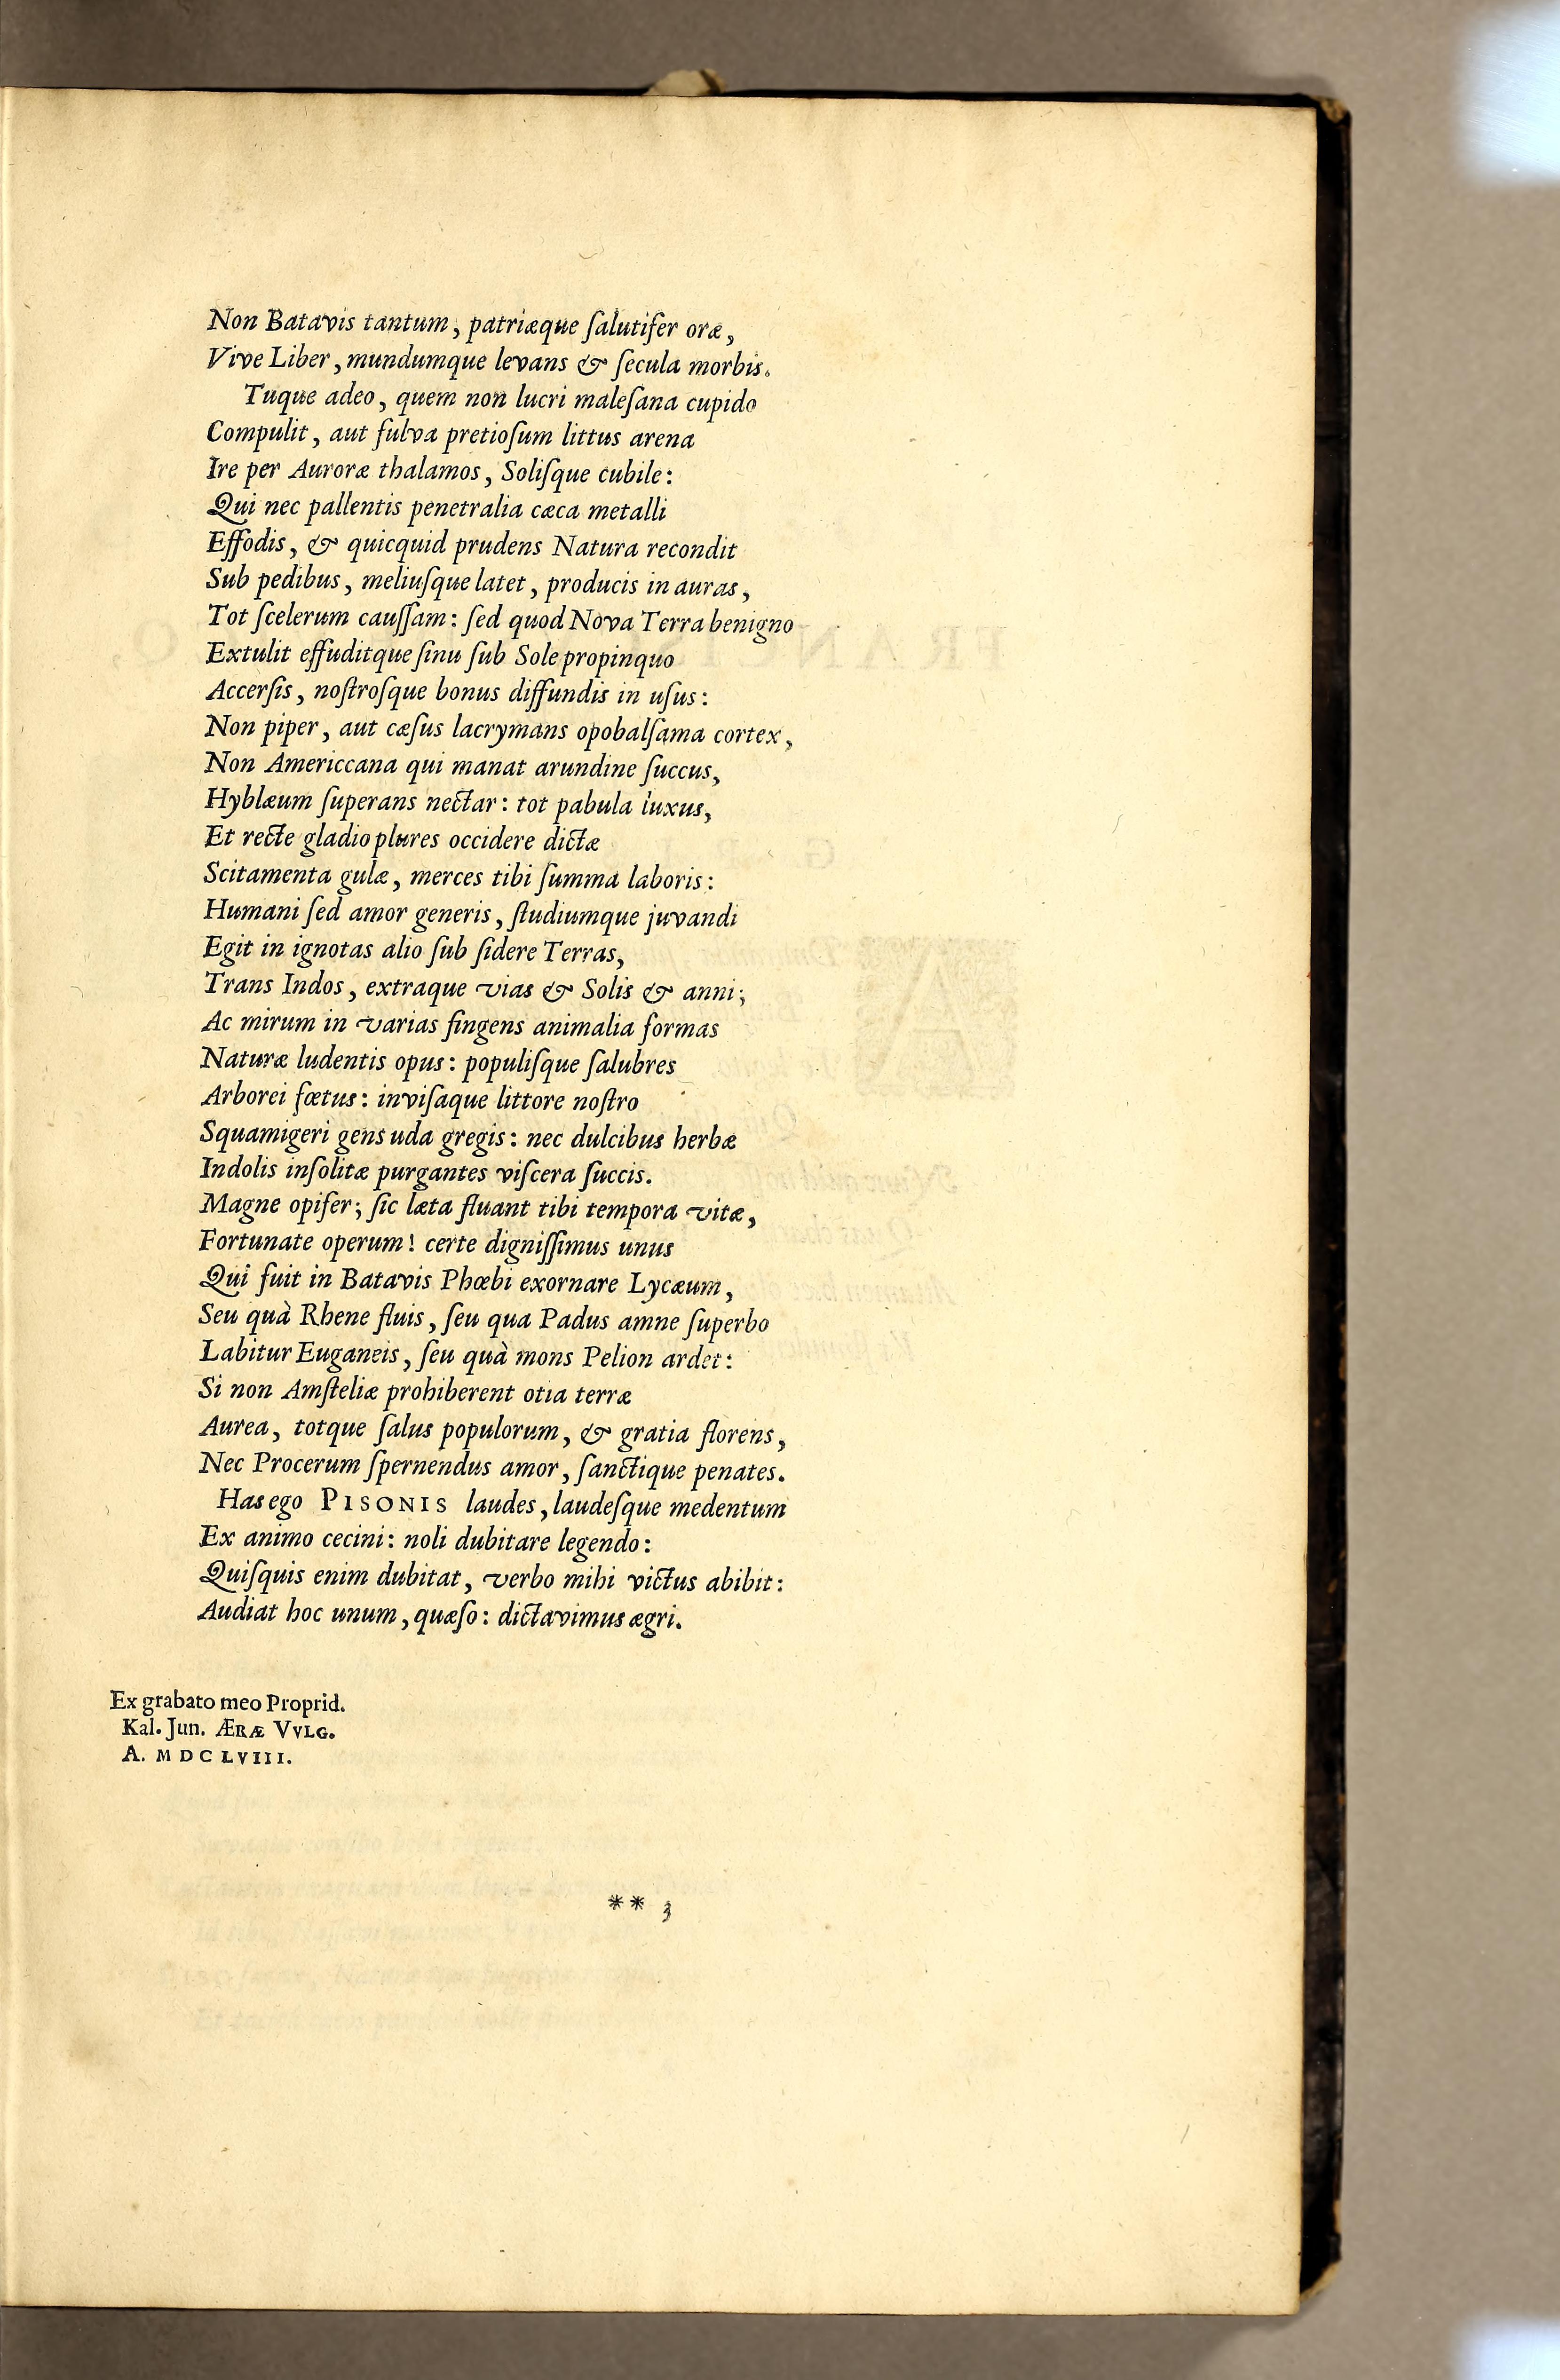 Non Batavis tantum, patriæque ſalutifer oræ,
Vive Liber, mundumque levans & ſecula morbis.
Tuque adeo, quem non lucri maleſana cupido
Compulit, aut fulva pretioſum littus arena
Ire per Auroræ thalamos, Soliſque cubile:
Qui nec pallentis penetralia cæca metalli
Effodis, & quicquid prudens Natura recondit
Sub pedibus, meliuſque latet, producis in auras,
Tot ſcelerum cauſſam: ſed quod Nova Terra benigno
Extulit effuditque ſinu ſub Sole propinquo
Accerſis, noſtroſque bonus diffundis in uſus:
Non piper, aut cæſus lacrymans opobalſama cortex,
Non Americcana qui manat arundine ſuccus,
Hyblæum ſuperans nectar: tot pabula luxus,
Et recte gladio plures occidere dictæ
Scitamenta gulæ, merces tibi ſumma laboris:
Humani ſed amor generis, ſtudiumque juvandi
Egit in ignotas alio ſub ſidere Terras,
Trans Indos, extraque vias & Solis & anni;
Ac mirum in varias fingens animalia formas
Naturæ ludentis opus: populiſque ſalubres
Arborei fœtus: inviſaque littore noſtro
Squamigeri gens uda gregis: nec dulcibus herbæ
Indolis inſolitæ purgantes viſcera ſuccis.
Magne opifer; ſic læta fluant tibi tempora vitæ,
Fortunate operum! certe digniſſimus unus
Qui fuit in Batavis Phœbi exornare Lycæum,
Seu quà Rhene fluis, ſeu qua Padus amne ſuperbo
Labitur Euganeis, ſeu quà mons Pelion ardet:
Si non Amſteliæ prohiberent otia terræ
Aurea, totque ſalus populorum, & gratia florens,
Nec Procerum ſpernendus amor, ſanctique penates.
Has ego PISONIS laudes, laudeſque medentum
Ex animo cecini: noli dubitare legendo:
Quiſquis enim dubitat, verbo mihi victus abibit:
Audiat hoc unum, quæſo: dictavimus ægri.
Ex grabato meo Proprid.
Kal. Jun. ÆRÆ VVLG.
A. MDCLVIII.
** 3